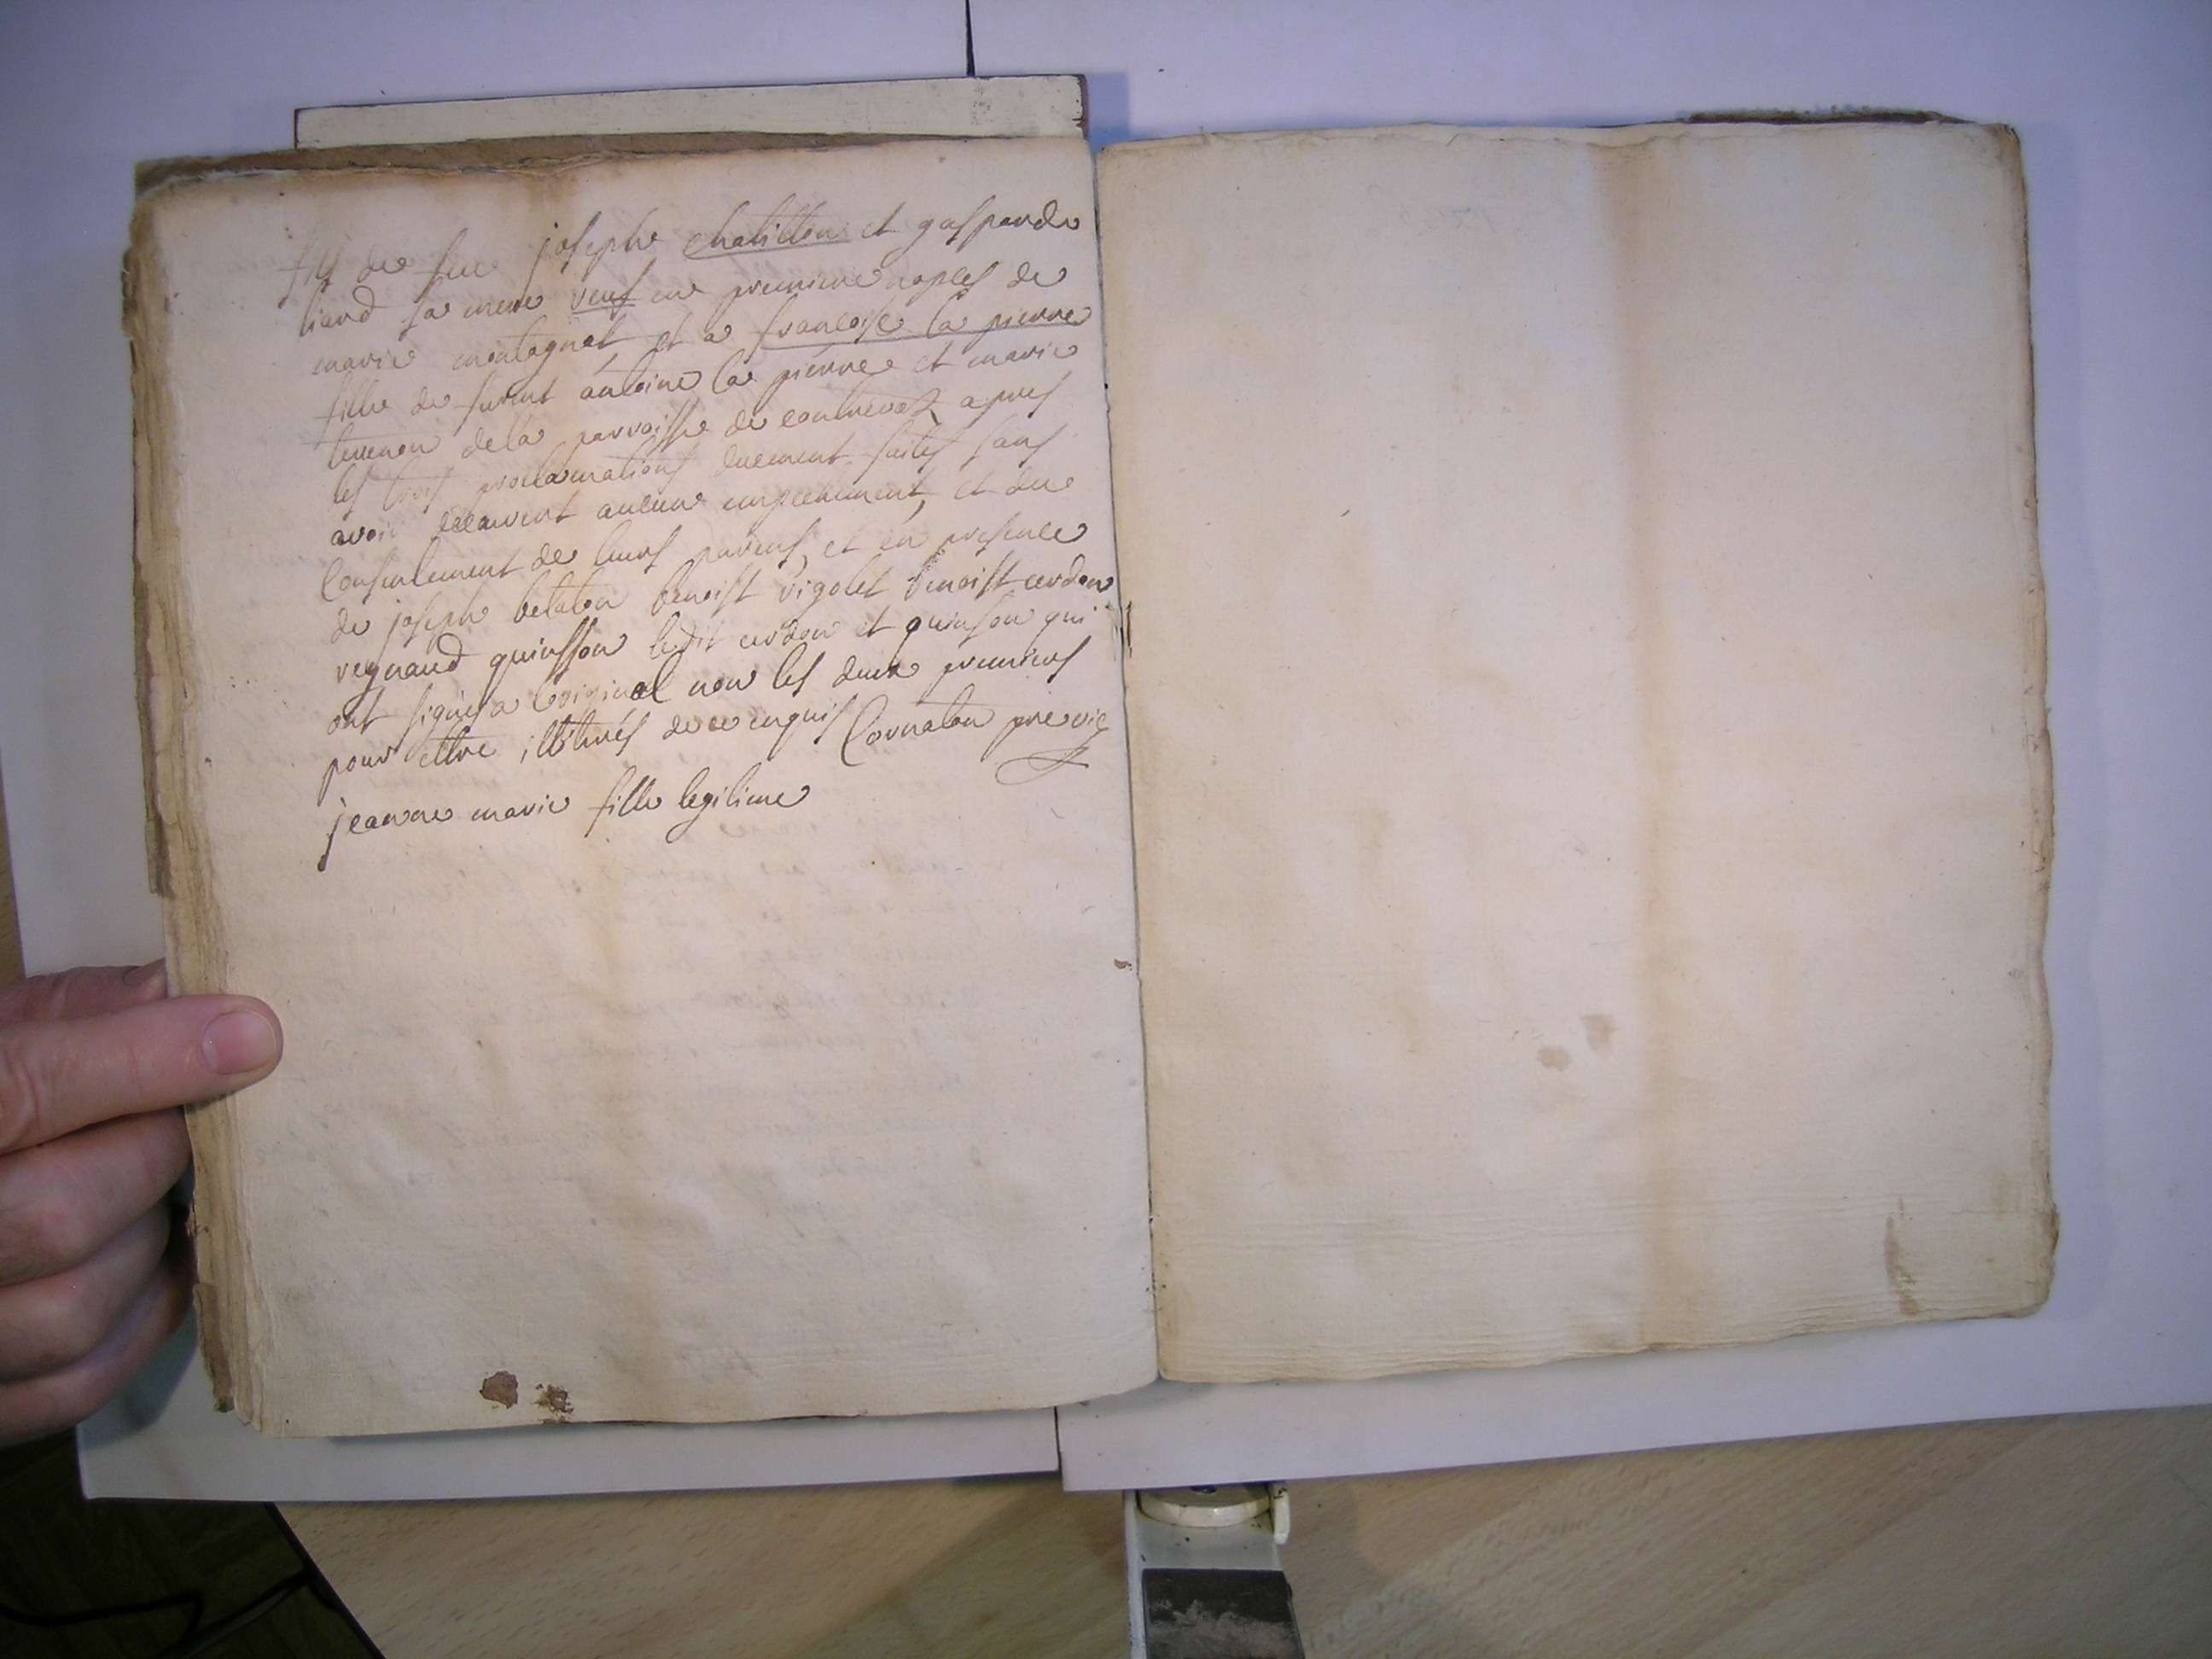 fils de feu joseph chatillon et gasparde
liand sa mere veuf en premiere nopces de
marie montagnat et a francoise la pierre
fille de furent antoine la pierre et marie
tenenon de la parroisse de conterevoz apres
les trois proclamations duement faites sans
avoir decouvert aucun empechement, et du
consentement de leurs parens, et en presence
de joseph betaton benoist vigolet benoist cerdon
reynaud quinsson ledit cerdon et quinson qui
ont signés a loriginal non les deux premiers
pour ettre illitirés de ce enquis Cornaton pre vic
jeanne marie fille legitime